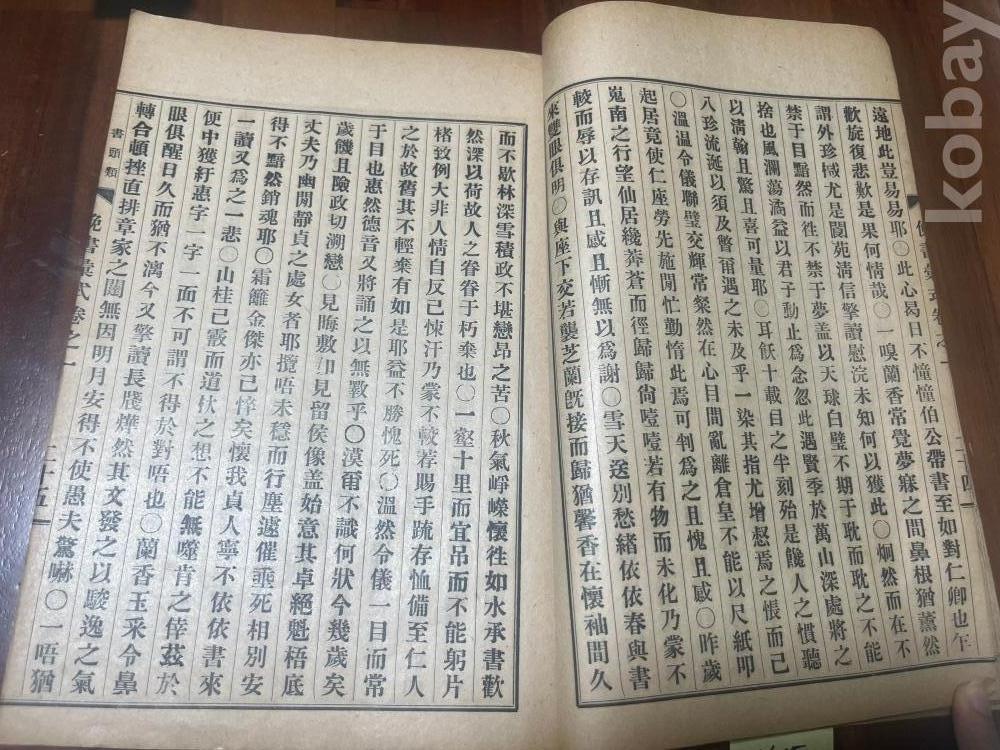 遠地此豈易易耶○此心曷日不憧憧伯公帶書至如對仁卿也乍
歡旋復悲歎是果何情哉○一嗅蘭香常覺夢寐之間鼻根猶薰然
謂外珍椷尤是閬苑淸信擎讀慰浣未知何以獲此○炯然而在不
禁于目黯然而徃不禁于夢盖以天球白璧不期于耽而耽之不能
捨也風瀾蕩潏益以君子動止爲念忽此遇賢季於萬山深處將之
以淸翰且驚且喜可量耶○耳飫十載目之半刻殆是饞人之慣聽
八珍流涎以須及瞥甭遇之未及乎一染其指尤增惄焉之悵而已
○溫溫令儀聯璧交輝常粲然在心目間亂離倉皇不能以尺紙叩
起居竟使仁座勞先施閒忙勤惰此焉可判爲之且愧且感○昨歲
嵬南之行望仙居纔莾蒼而徑歸歸尙噎噎若有物而未化乃蒙不
較而辱以存訊且感且慚無以爲謝○雪天送別愁緖依依春與書
來雙眼俱明○與座下交若襲芝蘭旣接而歸猶馨香在懷袖間久
二十四
而不歇林深雪積政不堪戀昂之苦○秋氣崢嶸懷徃如水承書歡
然深以荷故人之眷眷于朽棄也○一壑十里而宜吊而不能躬片
楮致例大非人情自反己悚汗乃蒙不較荐賜手疏存恤備至仁人
之於故舊其不輕棄有如是耶益不勝愧死○溫然令儀一目而常
于目也惠然德音又將誦之以無斁乎○漠甭不識何狀今幾歲矣
歲饑且險政切溯戀○見晦敷如見留侯像盖始意其卓絕魁梧底
丈夫乃幽閒靜貞之處女者耶攬唔未穩而行塵遠催垂死相別安
得不黯然銷魂耶○霜離金傑亦已悴矣懷我貞人寧不依依書來
一讀又爲之一悲○山桂已霰而道忲之想不能無噬肯之倖茲於
便中獲紆惠字一字一面不可謂不得於對唔也○蘭香玉釆令鼻
眼俱醒日久而猶不漓今又擎讀長牋燁然其文發之以駿逸之氣
轉合頓挫直排章家之閫無因明月安得不使愚夫驚嚇○一唔猶
書頭類
俛書彙式卷之一
二十五
kobay